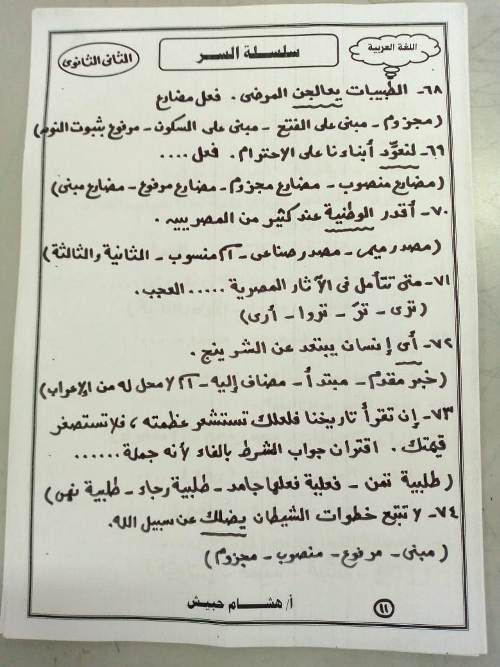 اللغة العربية
سلسلة السر
الثانى الثانوى
٦٨- الطبيبات يعالجن المرضى. فعل مضارع
(مجزوم - مبنى على الفتح - مبنى على السكون - مرفوع بثبوت النون)
٦٩- لنعوِّد أبناءنا على الاحترام. فعل ....
(مضارع منصوب - مضارع مجزوم - مضارع مرفوع - مضارع مبنى)
٧٠- أقدر الوطنية عند كثير من المصريين.
(مصدر ميمى - مصدر صناعى - اسم منسوب - الثانية والثالثة)
٧١- متى تتأمل فى الآثار المصرية ..... العجب.
(ترى - ترَ - تروا - أرى)
٧٢- أى إنسان يبتعد عن الشر ينج.
(خبر مقدم - مبتدأ - مضاف إليه - اسم لا محل له من الإعراب)
٧٣- إن تقرأ تاريخنا فلعلك تستشعر عظمته، فلا تستصغر
قيمتك. اقتران جواب الشرط بالفاء لأنه جملة ......
(طلبية تمن - فعلية فعلها جامد - طلبية رجاء - طلبية نهى)
٧٤- لا تتبع خطوات الشيطان يضلك عن سبيل الله.
(مبنى - مرفوع - منصوب - مجزوم)
أ/ هشام حبيش
١١